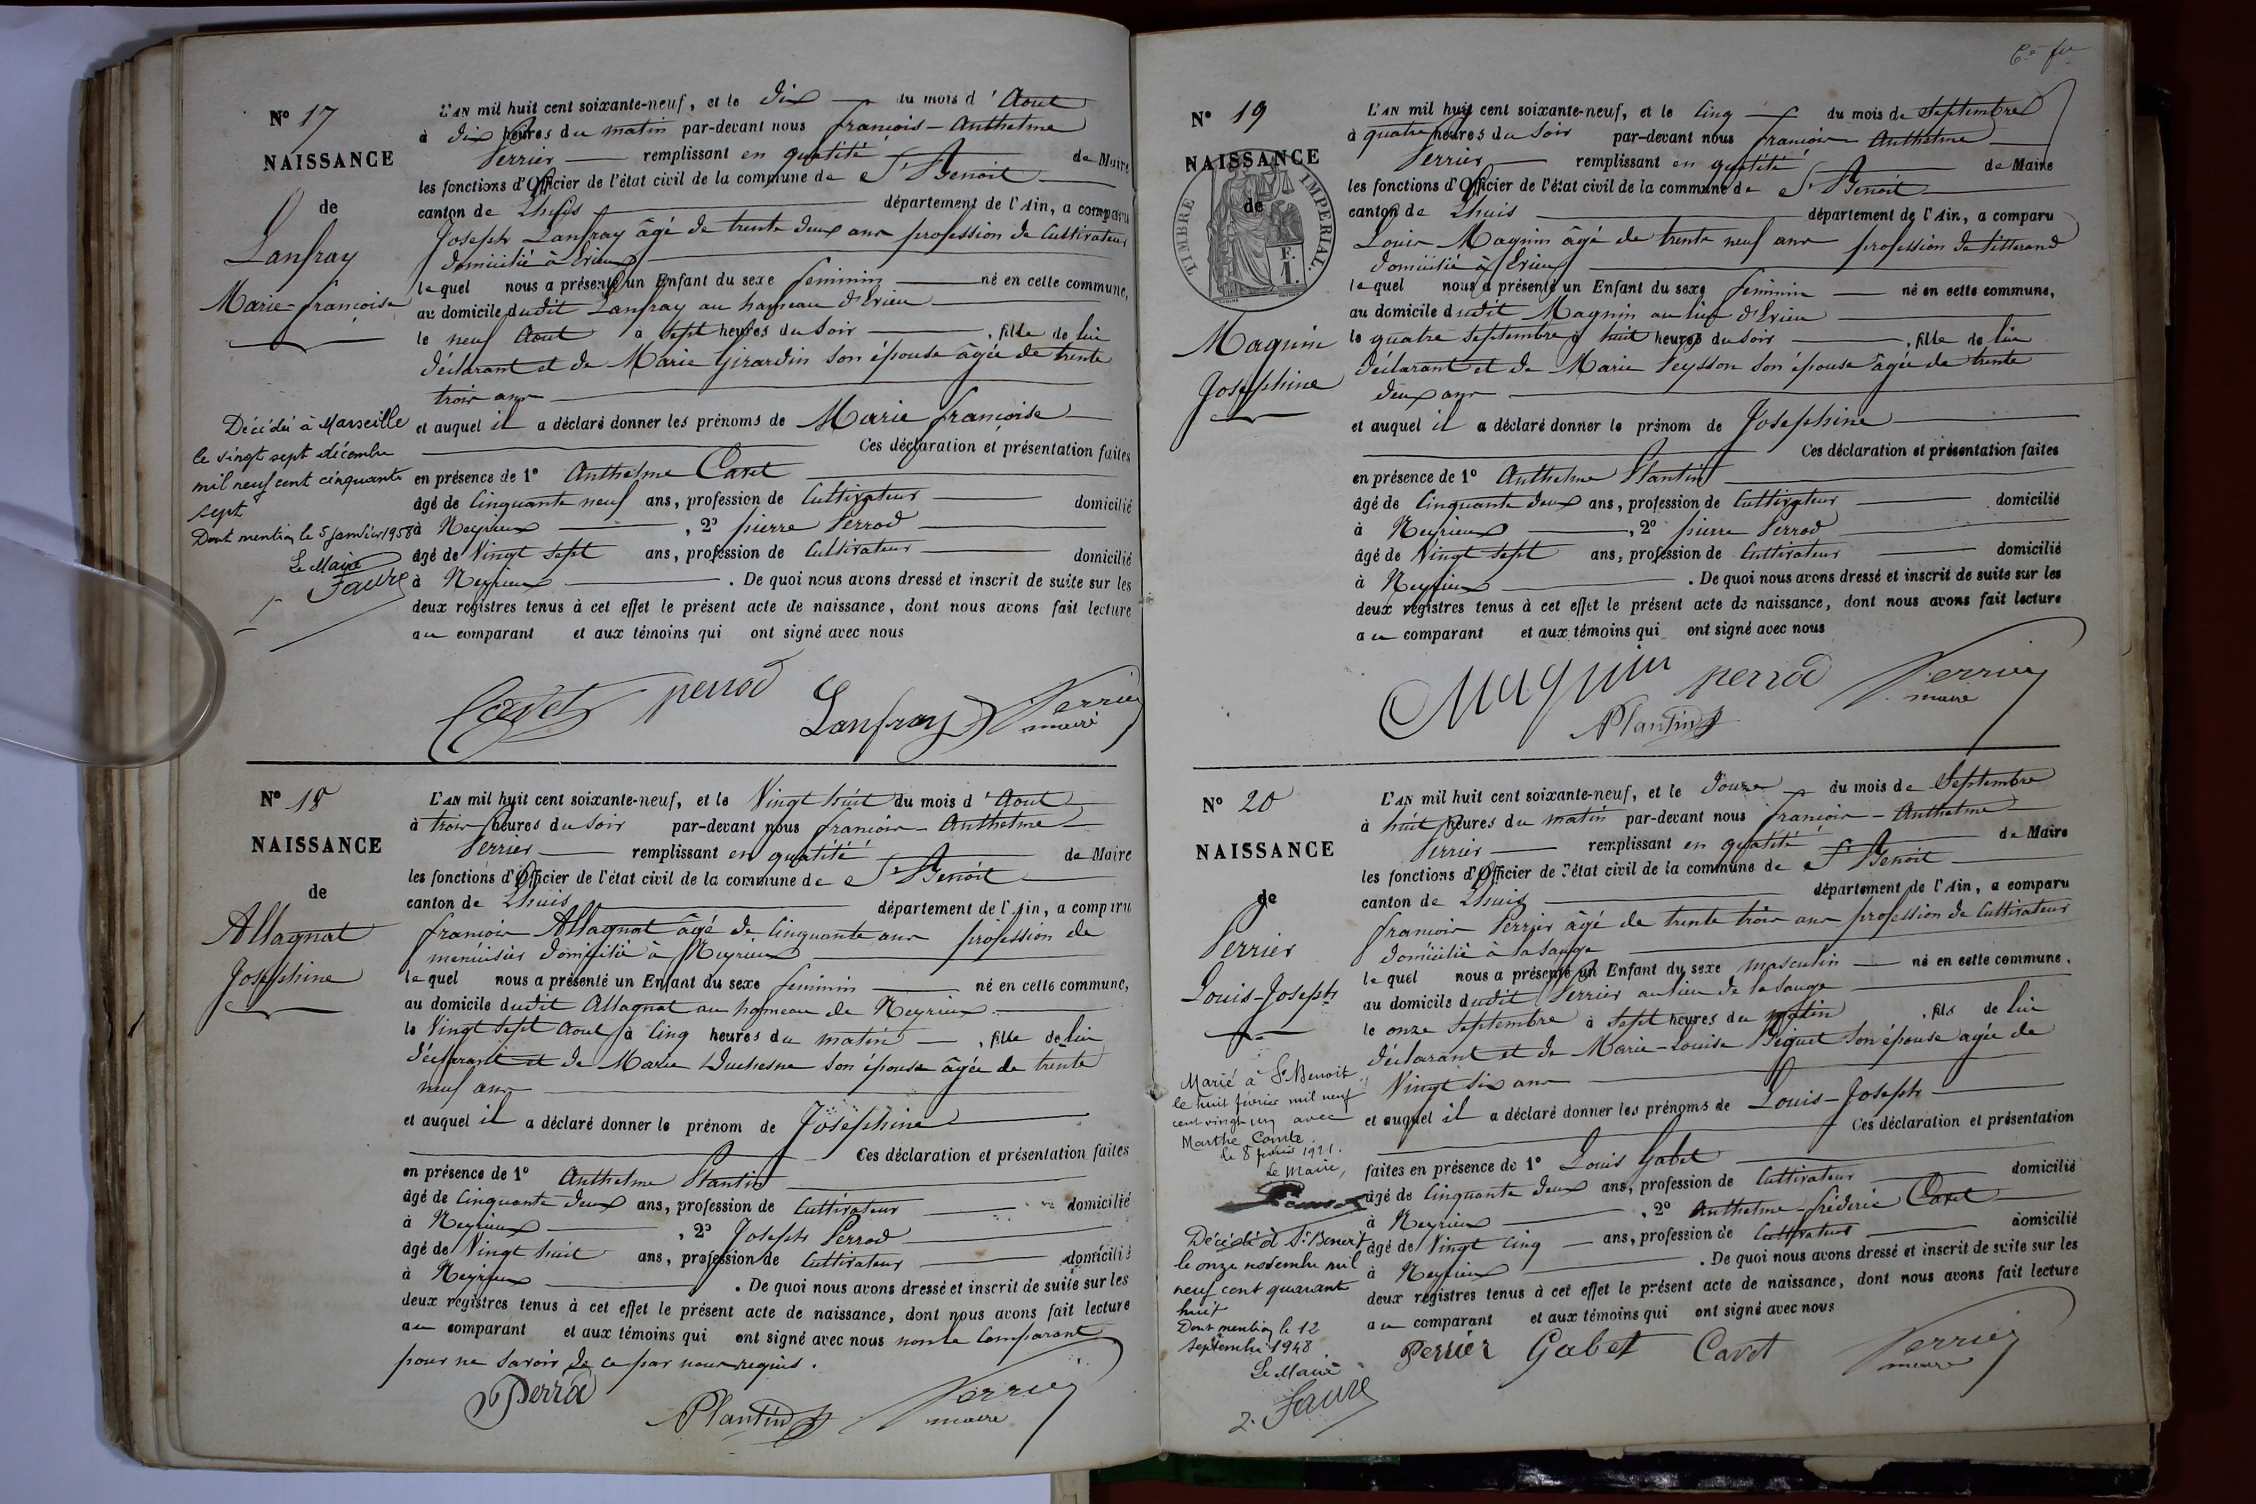 N° 17
NAISSANCE
de
Lanfray
Marie-françoise
Décédée à Marseille
le vingt sept décembre
mil neuf cent cinquante
sept
Dont mention le 5 janvier 1958
Le Maire
Faure
L'AN mil huit cent soixante-neuf, et le dix du mois d'Aout
à dix heures du matin par-devant nous françois-Anthelme
Perrier remplissant en qualité de Maire
les fonctions d'Officier de l'état civil de la commune de St Benoit
canton de Lhuis département de l'Ain, a comparu
Joseph Lanfray âgé de trente deux ans profession de Cultivateur
domicilié à Evieu
lequel nous a présenté un Enfant du sexe feminin né en cette commune,
au domicile dudit Lanfray au hameau d'Evieu
le neuf Aout à sept heures du soir, fille de lui
déclarant et de Marie Girardin son épouse âgée de trente
trois ans
et auquel il a déclaré donner les prénoms de Marie françoise
Ces déclaration et présentation faites
en présence de 1° Anthelme Cavet
âgé de Cinquante neuf ans, profession de Cultivateur domicilié
à Neyrieux, 2° pierre Perrod
âgé de Vingt sept ans, profession de Cultivateur domicilié
à Neyrieux. De quoi nous avons dressé et inscrit de suite sur les
deux registres tenus à cet effet le présent acte de naissance, dont nous avons fait lecture
au comparant et aux témoins qui ont signé avec nous
Cavet perrod Lanfray Perrier
maire
N° 18
NAISSANCE
de
Allagnat
Josephine
L'AN mil huit cent soixante-neuf, et le Vingt huit du mois d'Aout
à trois heures du soir par-devant nous françois-Anthelme
Perrier remplissant en qualité de Maire
les fonctions d'Officier de l'état civil de la commune de St Benoit
canton de Lhuis département de l'Ain, a comparu
françois Allagnat âgé de Cinquante ans profession de
menuisier domicilié à Neyrieux
lequel nous a présenté un Enfant du sexe feminin né en cette commune,
au domicile dudit Allagnat au hameau de Neyrieux
le Vingt sept Aout à Cinq heures du matin, fille de lui
déclarant et de Marie Duchesne son épouse âgée de trente
neuf ans
et auquel il a déclaré donner le prénom de Josephine
Ces déclaration et présentation faites
en présence de 1° Anthelme Plantin
âgé de Cinquante deux ans, profession de Cultivateur domicilié
à Neyrieux, 2° Joseph Perrod
âgé de Vingt huit ans, profession de Cultivateur domicilié
à Neyrieux. De quoi nous avons dressé et inscrit de suite sur les
deux registres tenus à cet effet le présent acte de naissance, dont nous avons fait lecture
au comparant et aux témoins qui ont signé avec nous non le Comparant
pour ne savoir de ce par nous requis.
Perrod Plantin Perrier
maire
N° 19
NAISSANCE
de
TIMBRE IMPERIAL.
F.
1.
Magnin
Josephine
L'AN mil huit cent soixante-neuf, et le Cinq du mois de Septembre
à quatre heures du soir par-devant nous françois Anthelme
Perrier remplissant en qualité de Maire
les fonctions d'Officier de l'état civil de la commune de St Benoit
canton de Lhuis département de l'Ain, a comparu
Louis Magnin âgé de trente neuf ans profession de tisserand
domicilié à Evieu
lequel nous a présenté un Enfant du sexe feminin né en cette commune,
au domicile dudit Magnin au lieu d'Evieu
le quatre septembre à huit heures du soir, fille de lui
déclarant et de Marie Peysson son épouse âgée de trente
deux ans
et auquel il a déclaré donner le prénom de Josephine
Ces déclaration et présentation faites
en présence de 1° Anthelme Plantin
âgé de Cinquante deux ans, profession de Cultivateur domicilié
à Neyrieux, 2° pierre Perrod
âgé de Vingt sept ans, profession de Cultivateur domicilié
à Neyrieux. De quoi nous avons dressé et inscrit de suite sur les
deux registres tenus à cet effet le présent acte de naissance, dont nous avons fait lecture
au comparant et aux témoins qui ont signé avec nous
Magnin perrod Perrier
maire
Plantin
N° 20
NAISSANCE
de
Perrier
Louis-Joseph
Marié à St Benoit
le huit février mil neuf
cent vingt un avec
Marthe Comte
le 8 février 1921.
Le Maire,
Décédé à St Benoit
le onze novembre mil
neuf cent quarante
huit
Dont mention le 12
septembre 1948
Le Maire
2. Faure
L'AN mil huit cent soixante-neuf, et le douze du mois de Septembre
à huit heures du matin par-devant nous françois-Anthelme
Perrier remplissant en qualité de Maire
les fonctions d'Officier de l'état civil de la commune de St Benoit
canton de Lhuis département de l'Ain, a comparu
françois Perrier âgé de trente trois ans profession de Cultivateur
domicilié à la Sauge
lequel nous a présenté un Enfant du sexe masculin né en cette commune,
au domicile dudit Perrier au lieu de la Sauge
le onze septembre à sept heures du matin, fils de lui
déclarant et de Marie-Louise Piquet son épouse agée de
Vingt six ans
et auquel il a déclaré donner les prénoms de Louis-Joseph
Ces déclaration et présentation
faites en présence de 1° Louis Gabet
âgé de Cinquante deux ans, profession de Cultivateur domicilié
à Neyrieux, 2° Anthelme-fréderic Cavet
âgé de Vingt Cinq ans, profession de Cultivateur domicilié
à Neyrieux. De quoi nous avons dressé et inscrit de suite sur les
deux registres tenus à cet effet le présent acte de naissance, dont nous avons fait lecture
au comparant et aux témoins qui ont signé avec nous
Perrier Gabet Cavet Perrier
maire